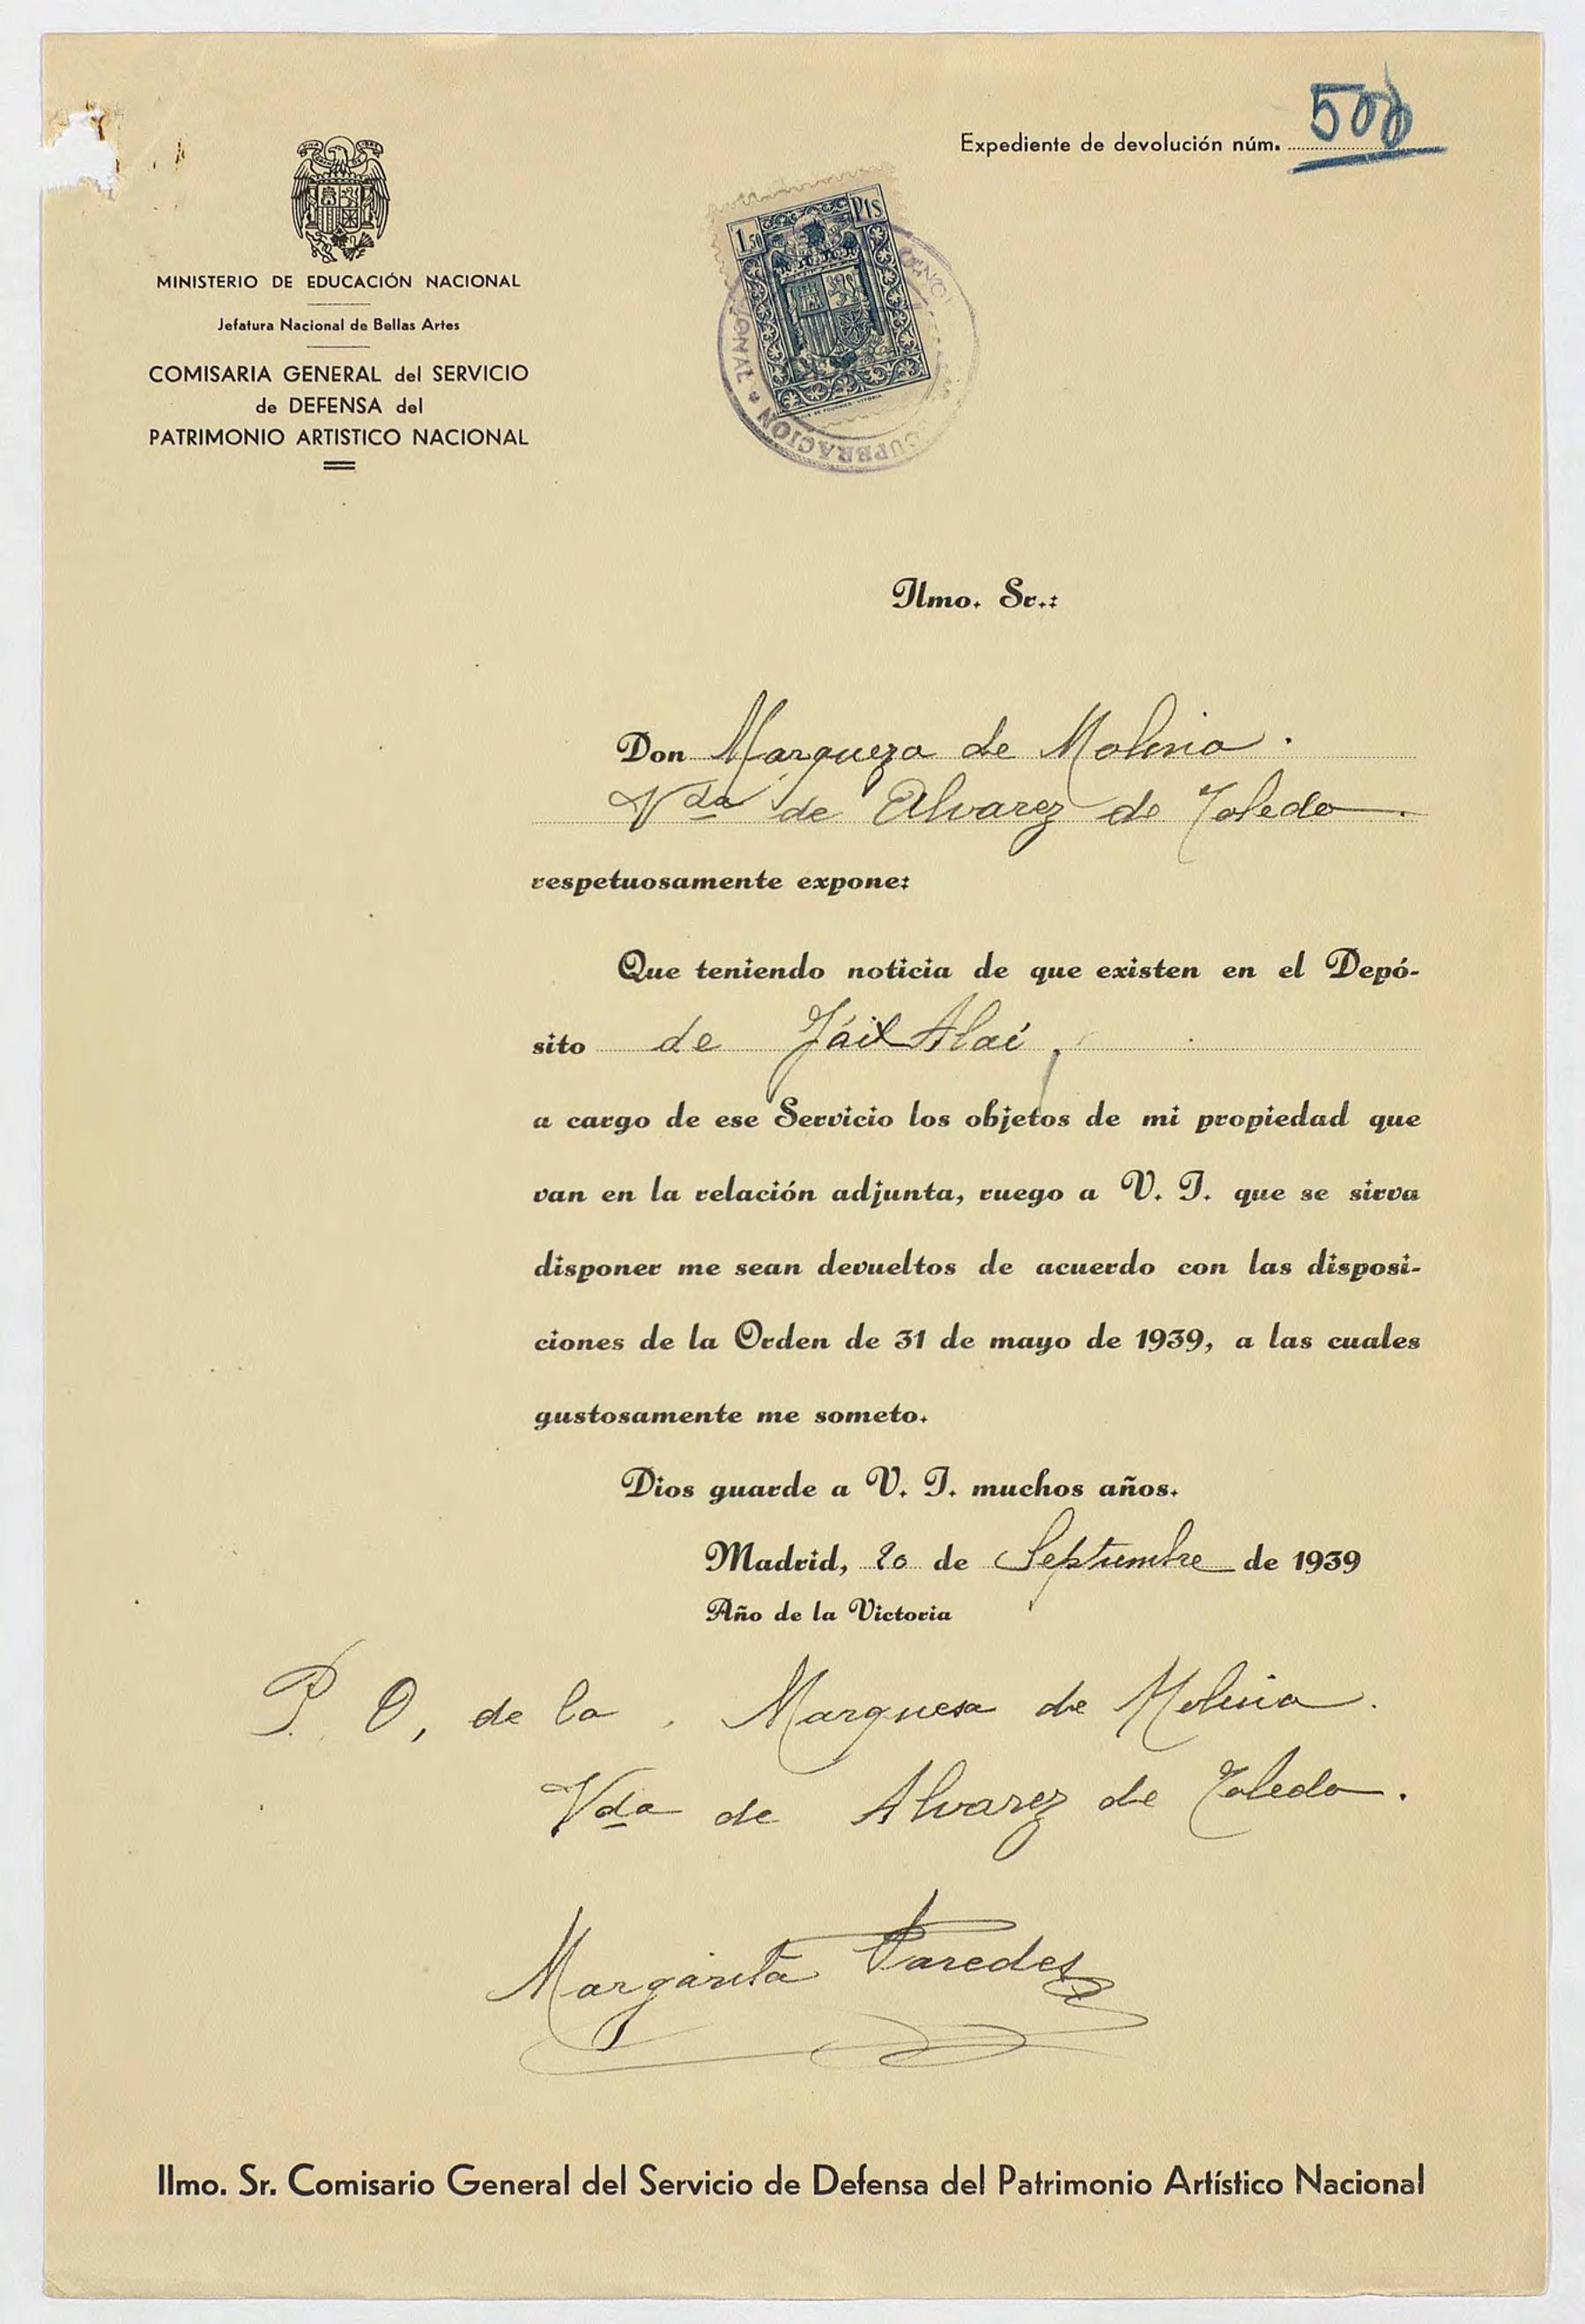 Expediente de devolución núm. 500
MINISTERIO DE EDUCACIÓN NACIONAL
Jefatura Nacional de Bellas Artes
COMISARIA GENERAL del SERVICIO
de DEFENSA del
PATRIMONIO ARTISTICO NACIONAL
1,50 Pts
Ilmo. Sr.:
Don Marqueza de Molina.
Vda de Alvarez de Toledo.
respetuosamente expone:
Que teniendo noticia de que existen en el Depó-
sito de Jáix Alai,
a cargo de ese Servicio los objetos de mi propiedad que
van en la relación adjunta, ruego a V. I. que se sirva
disponer me sean devueltos de acuerdo con las disposi-
ciones de la Orden de 31 de mayo de 1939, a las cuales
gustosamente me someto.
Dios guarde a V. I. muchos años.
Madrid, 20 de Septiembre de 1939
Año de la Victoria
P. O, de la Marquesa de Molina.
Vda de Alvarez de Toledo.
Margarita Paredes
Ilmo. Sr. Comisario General del Servicio de Defensa del Patrimonio Artístico Nacional